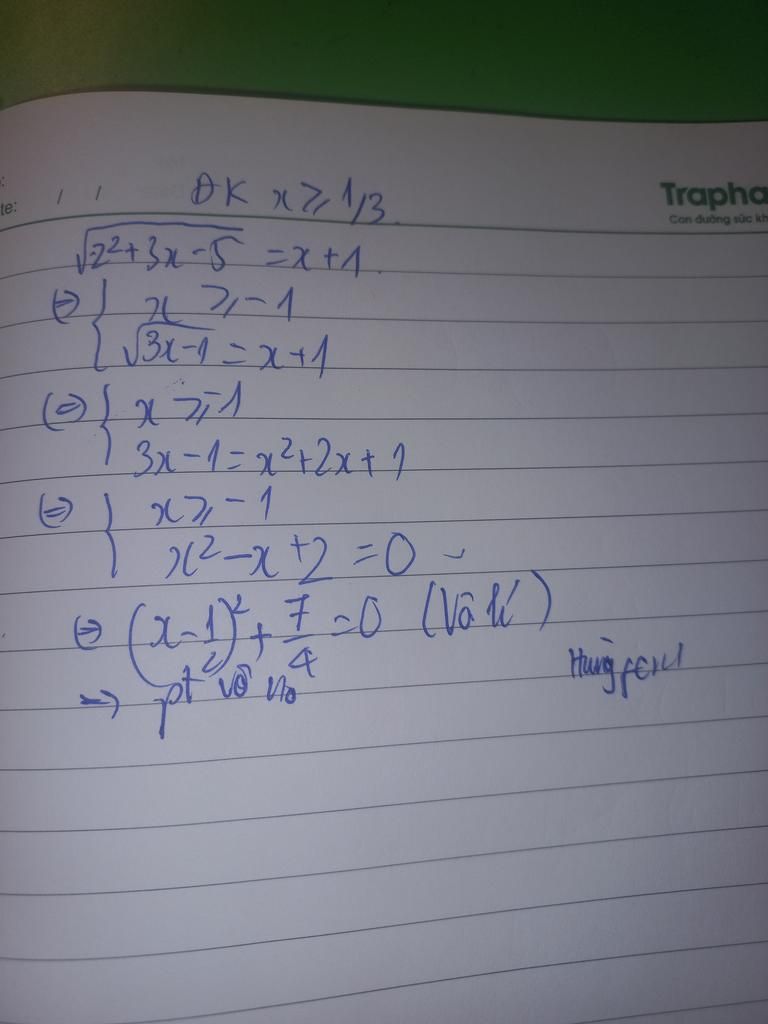 te: / / ĐK x ≥ 1/3
Trapha
Con đường sức kh
√2²+3x-5 = x+1
(=) { x ≥ -1
√3x-1 = x+1
(=) { x ≥ -1
3x-1 = x²+2x+1
(=) { x ≥ -1
x²-x+2 = 0
(=) (x - 1/2)² + 7/4 = 0 (Vô lí)
=> pt vô no